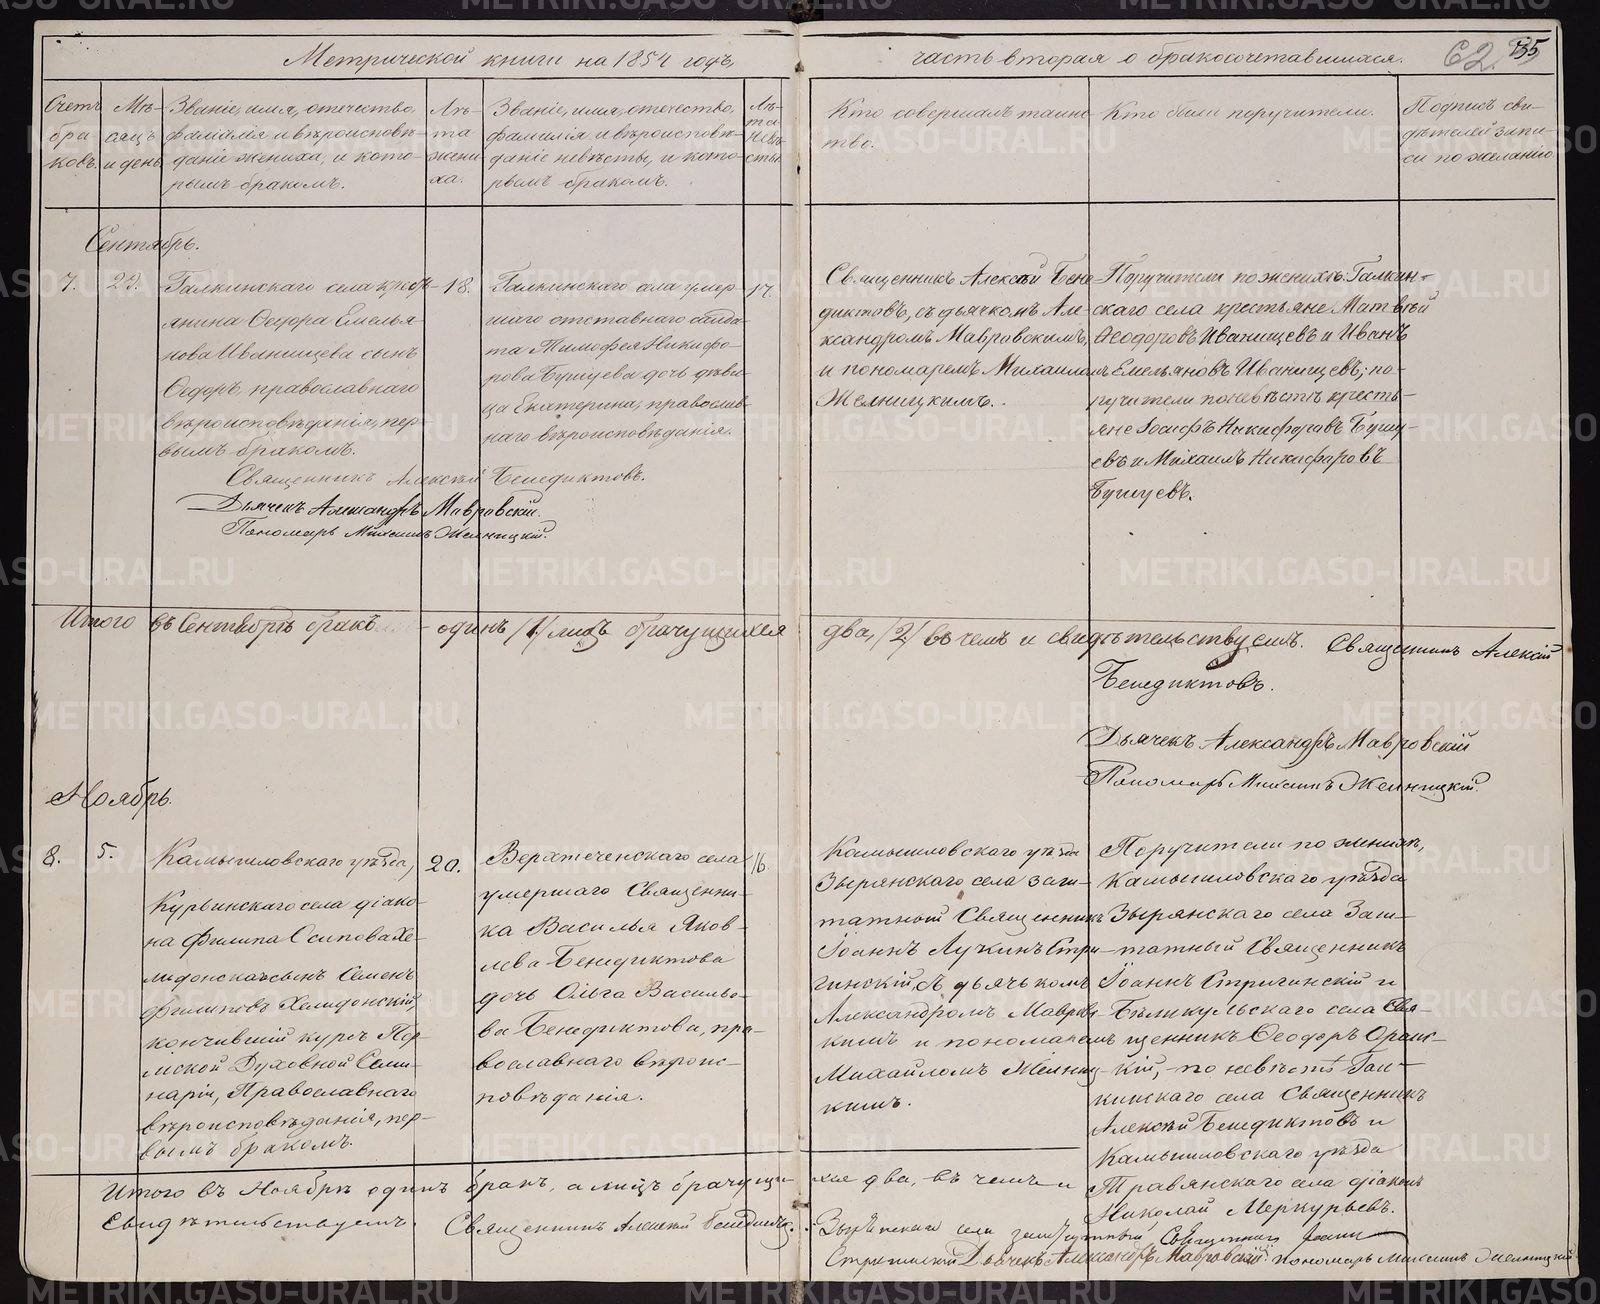 Метрической книги на 1854 годъ,
часть вторая о бракосочетавшихся.
62.
Счетъ
бра-
ковъ.
Мѣ-
сяцъ
и день
Званіе, имя, отечество,
фамилія и вѣроисповѣ-
даніе жениха, и кото-
рымъ бракомъ.
Лѣ-
та
жени
ха.
Званіе, имя, отечество,
фамилія и вѣроисповѣ-
даніе невѣсты, и кото-
рымъ бракомъ.
Лѣ-
та
невѣ-
сты
Кто совершалъ таинс-
тво.
Кто были поручители.
Подпись сви-
дѣтелей запи-
си по желанію.
Сентябрь.
7.
22.
Галкинскаго села крест-
янина Ѳедора Емелья-
нова Иванищева сынъ
Ѳедоръ, православнаго
вѣроисповѣданія, пер-
вымъ бракомъ.
18.
Галкинскаго села умер-
шаго отставнаго солда-
та Тимофея Никифо-
рова Бушуева дочь дѣви-
ца Екатерина, православ-
наго вѣроисповѣданія.
17.
Священникъ Алексѣй Бене-
диктовъ, съ дьячкомъ Ал-
ксандромъ Мавровскимъ,
и пономаремъ Михаиломъ
Желницкимъ.
Поручители по женихѣ: Галкин-
скаго села крестьяне Матвѣй
Ѳеодоровъ Иванищевъ и Иванъ
Емельяновъ Иванищевъ; по-
ручители по невѣстѣ кресть-
яне Іосифъ Никифоровъ Бушу-
евъ и Михаилъ Никифоровъ
Бушуевъ.
Священникъ Алексѣй Бенедиктовъ.
Дьячекъ Александръ Мавровскій.
Пономарь Михаилъ Желницкій.
Итого въ Сентябрѣ бракъ - одинъ /1/ лицъ брачущихся
два, /2/ въ чемъ и свидѣтельствуемъ. Священникъ Алексій
Бенедиктовъ.
Дьячекъ Александръ Мавровскій
Пономарь Михаилъ Желницкій.
Ноябрь.
8.
5.
Камышловскаго уѣзда,
Курьинскаго села діако-
на Филипа Осипова Хе-
лидонскаго сынъ Семенъ
Филиповъ Хелидонскій,
кончившій курсъ Пер-
мской Духовной Семи-
наріи, Православнаго
вѣроисповѣданія, пер-
вымъ бракомъ.
20.
Верхтеченскаго села
умершаго Священни-
ка Василья Яков-
лева Бенедиктова
дочь Ольга Василье-
ва Бенедиктова, пра-
вославнаго вѣроис-
повѣданія.
16.
Камышловскаго уѣзда
Зырянскаго села заш-
татный Священникъ
Іоаннъ Лукинъ Стри-
гинскій, съ дьячькомъ
Александромъ Мавровс-
кимъ и пономаремъ
Михайломъ Желниц-
кимъ.
Поручители по женихѣ,
Камышловскаго уѣзда
Зырянскаго села Заш-
татный Священникъ
Іоаннъ Стригинскій и
Бѣликульскаго села Свя-
щенникъ Ѳеодоръ
кій, - по невѣстѣ Гал-
кинскаго села Священникъ
Алексѣй Бенедиктовъ и
Камышловскаго уѣзда
Травянскаго села діаконъ
Николай Меркурьевъ.
Итого въ Ноябрѣ одинъ бракъ, а лицъ брачущи-
хся два, - въ чемъ и
свидѣтельствуемъ. Священникъ Алексѣй Бенедиктовъ.
Зырянскаго села заштатный Священникъ Іоаннъ
Стригинскій Дьячекъ Александръ Мавровскій. Пономарь Михаилъ Желницкій
METRIKI.GASO-URAL.RU